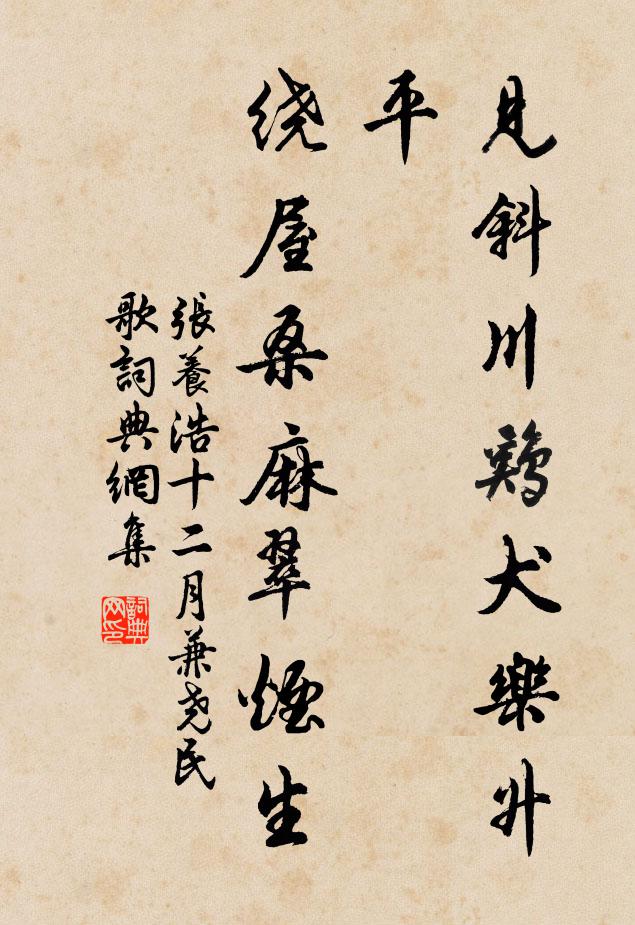 見斜川鷄犬樂升
平
绕屋桑麻翠煙生
張養浩十二月兼尧民
歌詞典網集
詞典网印